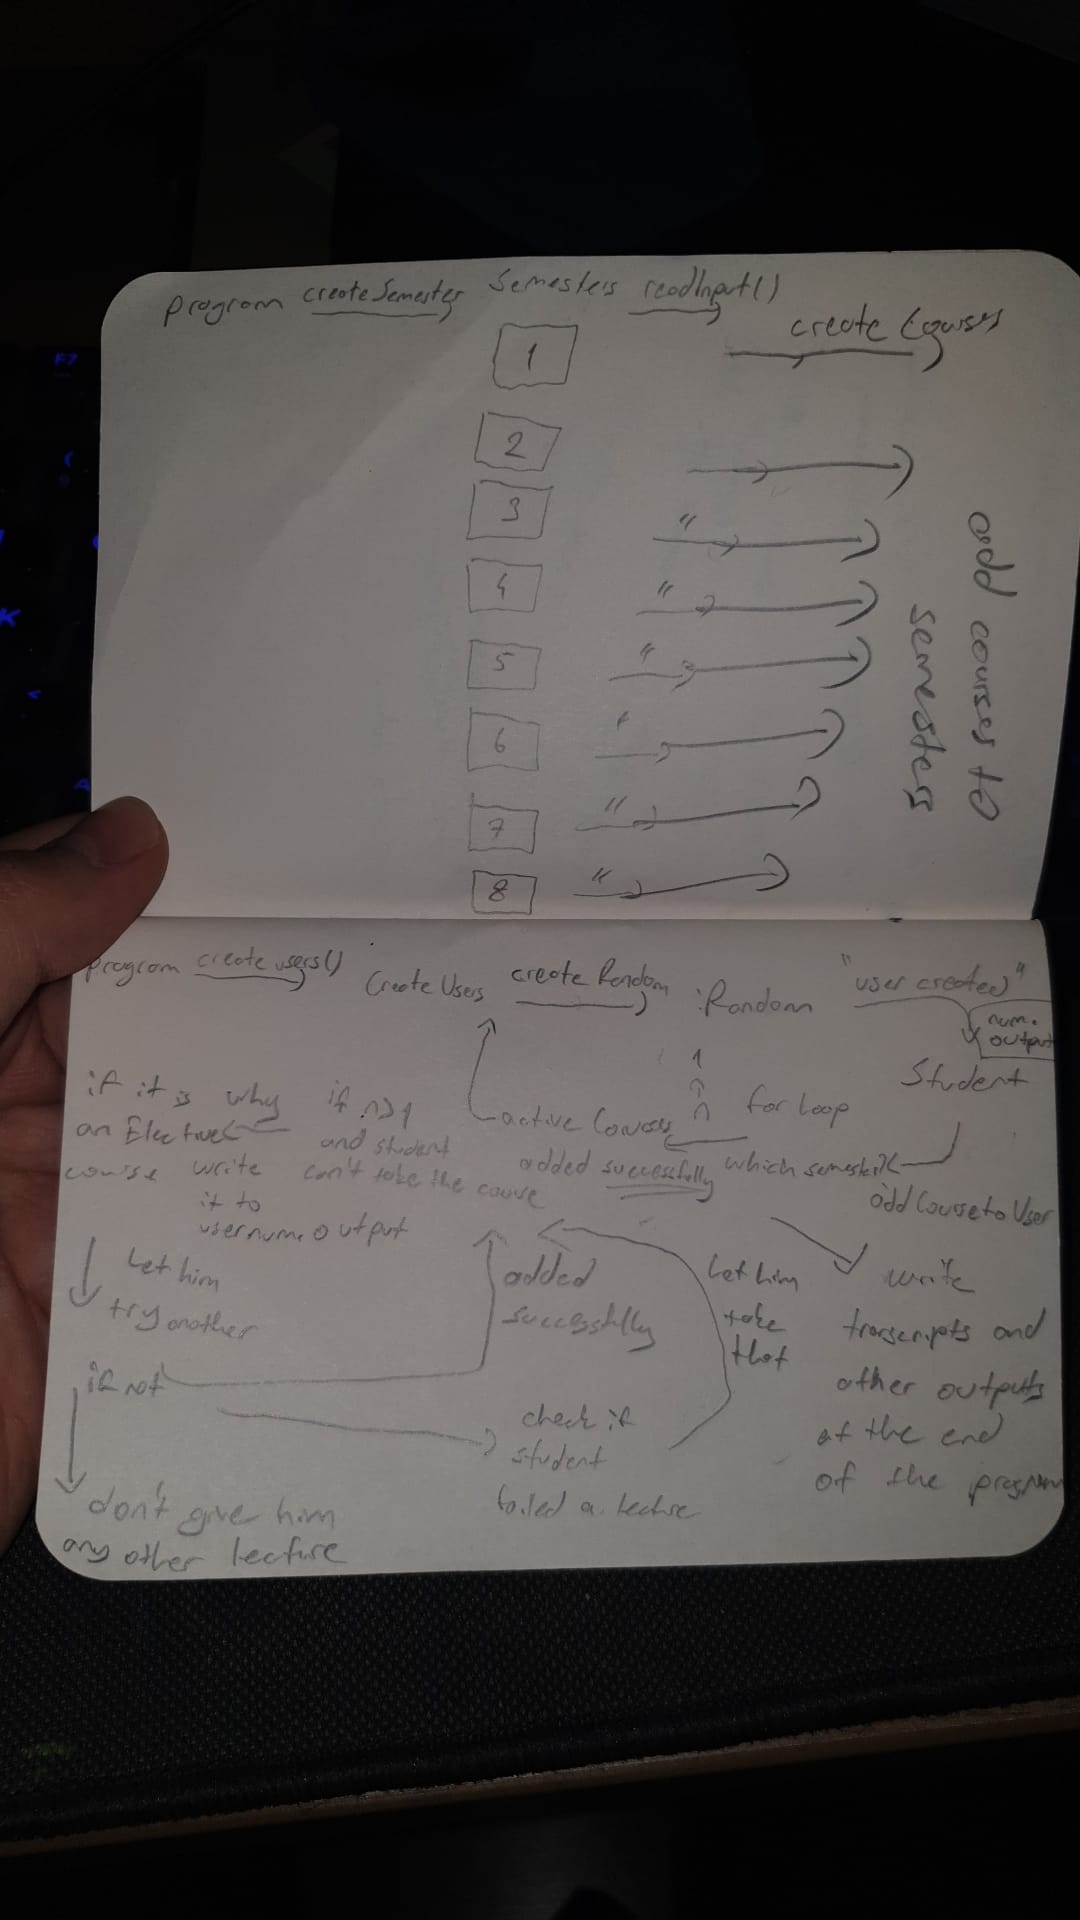 program createSemester Semesters readInput()
create Courses
1
2
3
"
4
"
5
"
6
7
"
8
"
add courses to
semesters
program create users()
Create Users
create Random
:Random
"user created"
num.
output
Student
1
n
for loop
active Courses
added successfully
which semester?
add Course to User
if n>1
and student
can't take the course
why
write
it to
usernum.output
if it is
an Elective
course
Let him
try another
if not
don't give him
any other lecture
added
successfully
check if
student
failed a lecture
Let him
take
that
write
transcripts and
other outputs
at the end
of the program
F7
K
A